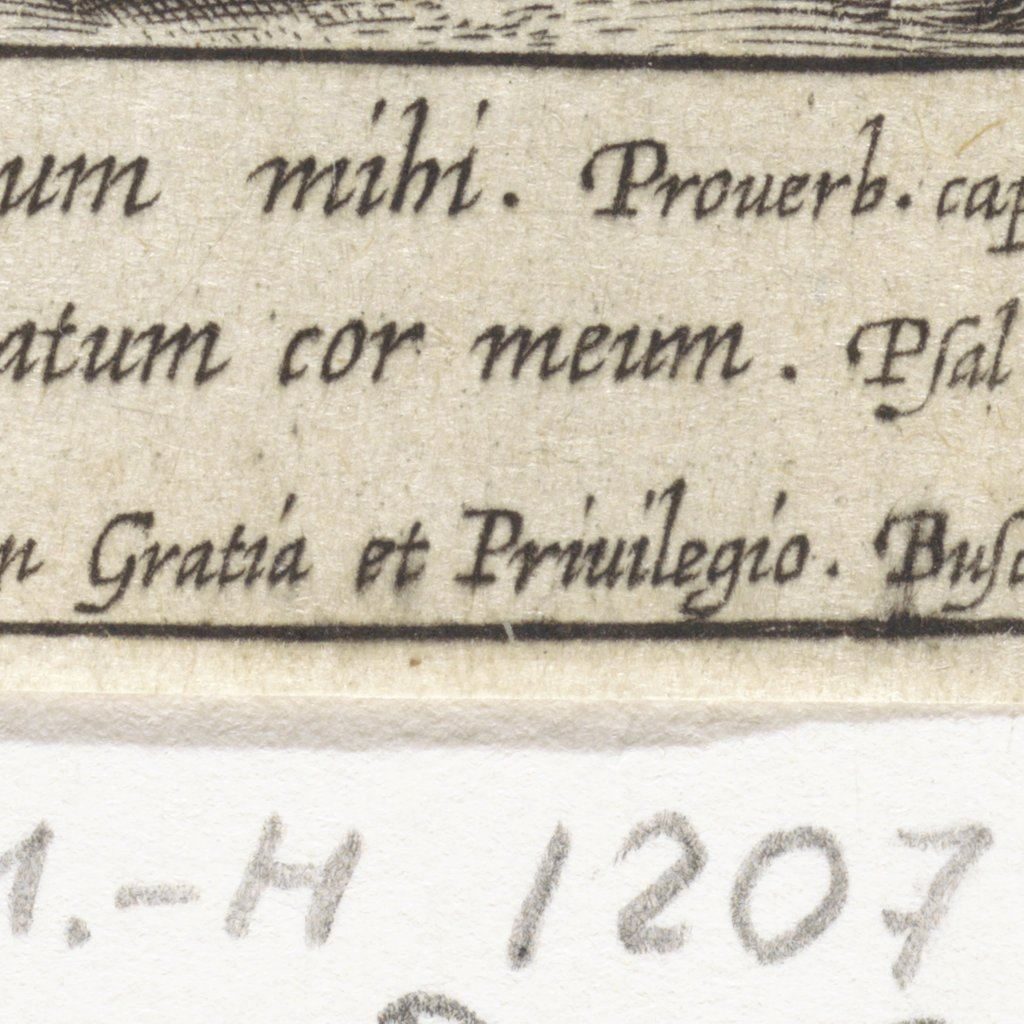 um mihi. Prouerb. cap
atum cor meum. Pſal
n Gratia et Priuilegio. Buſc
M.-H 1207